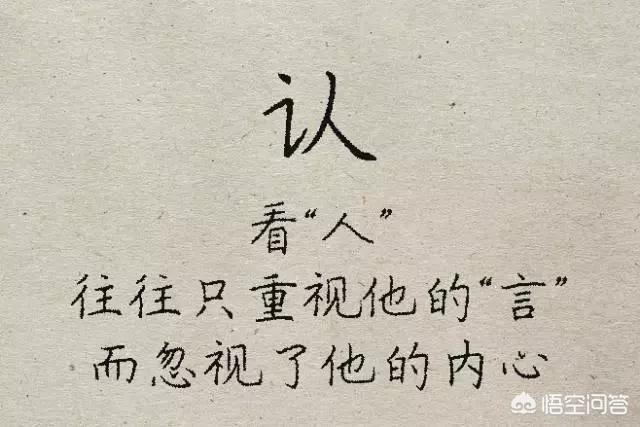 认
看“人”
往往只重视他的“言”
而忽视了他的内心
悟空问答